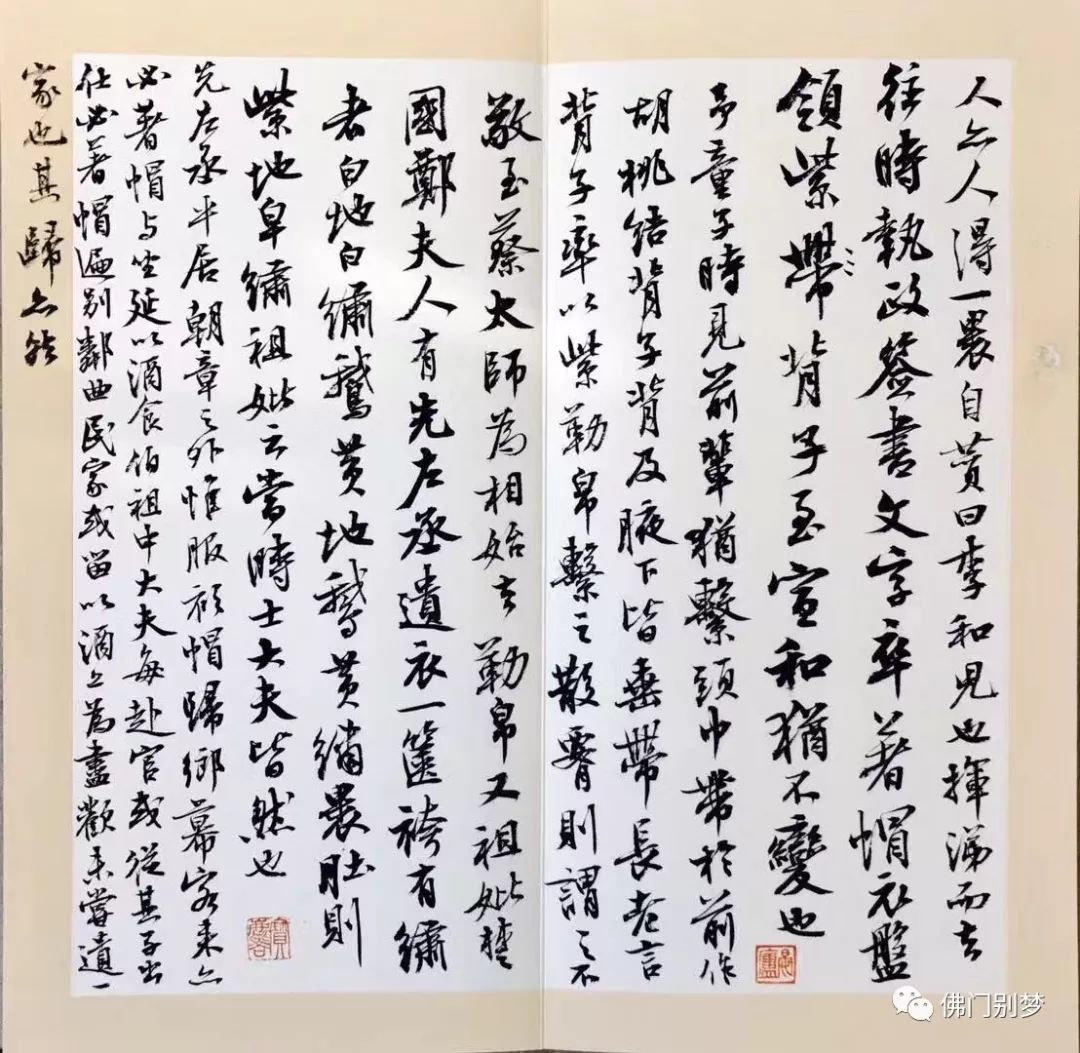 人亦人得一裹自贡曰李和児也揮涕而去
往時執政签書文字卒著帽衣盤
領紫帶背子至宣和猶不變也
予童子時見前輩猶繫頭巾帶於前作
胡桃结背子背及腋下皆垂帶長老言
背子率以紫勒帛繫之散腰則謂之不
敬至蔡太師為相始去勒帛又祖妣楚
國鄭夫人有先左丞遺衣一篋袴有繡
者白地白繡鵝黄地鵝黄繡裹肚則
紫地皁繡祖妣云當時士大夫皆然也
先左丞平居朝章之外惟服衫帽歸鄉幕客来亦
必著帽与坐延以酒食伯祖中大夫每赴官或従其子出
仕必著帽遍别鄰曲民家或留以酒亦為盡歡未嘗遺一
家也其歸亦然
佛门别梦